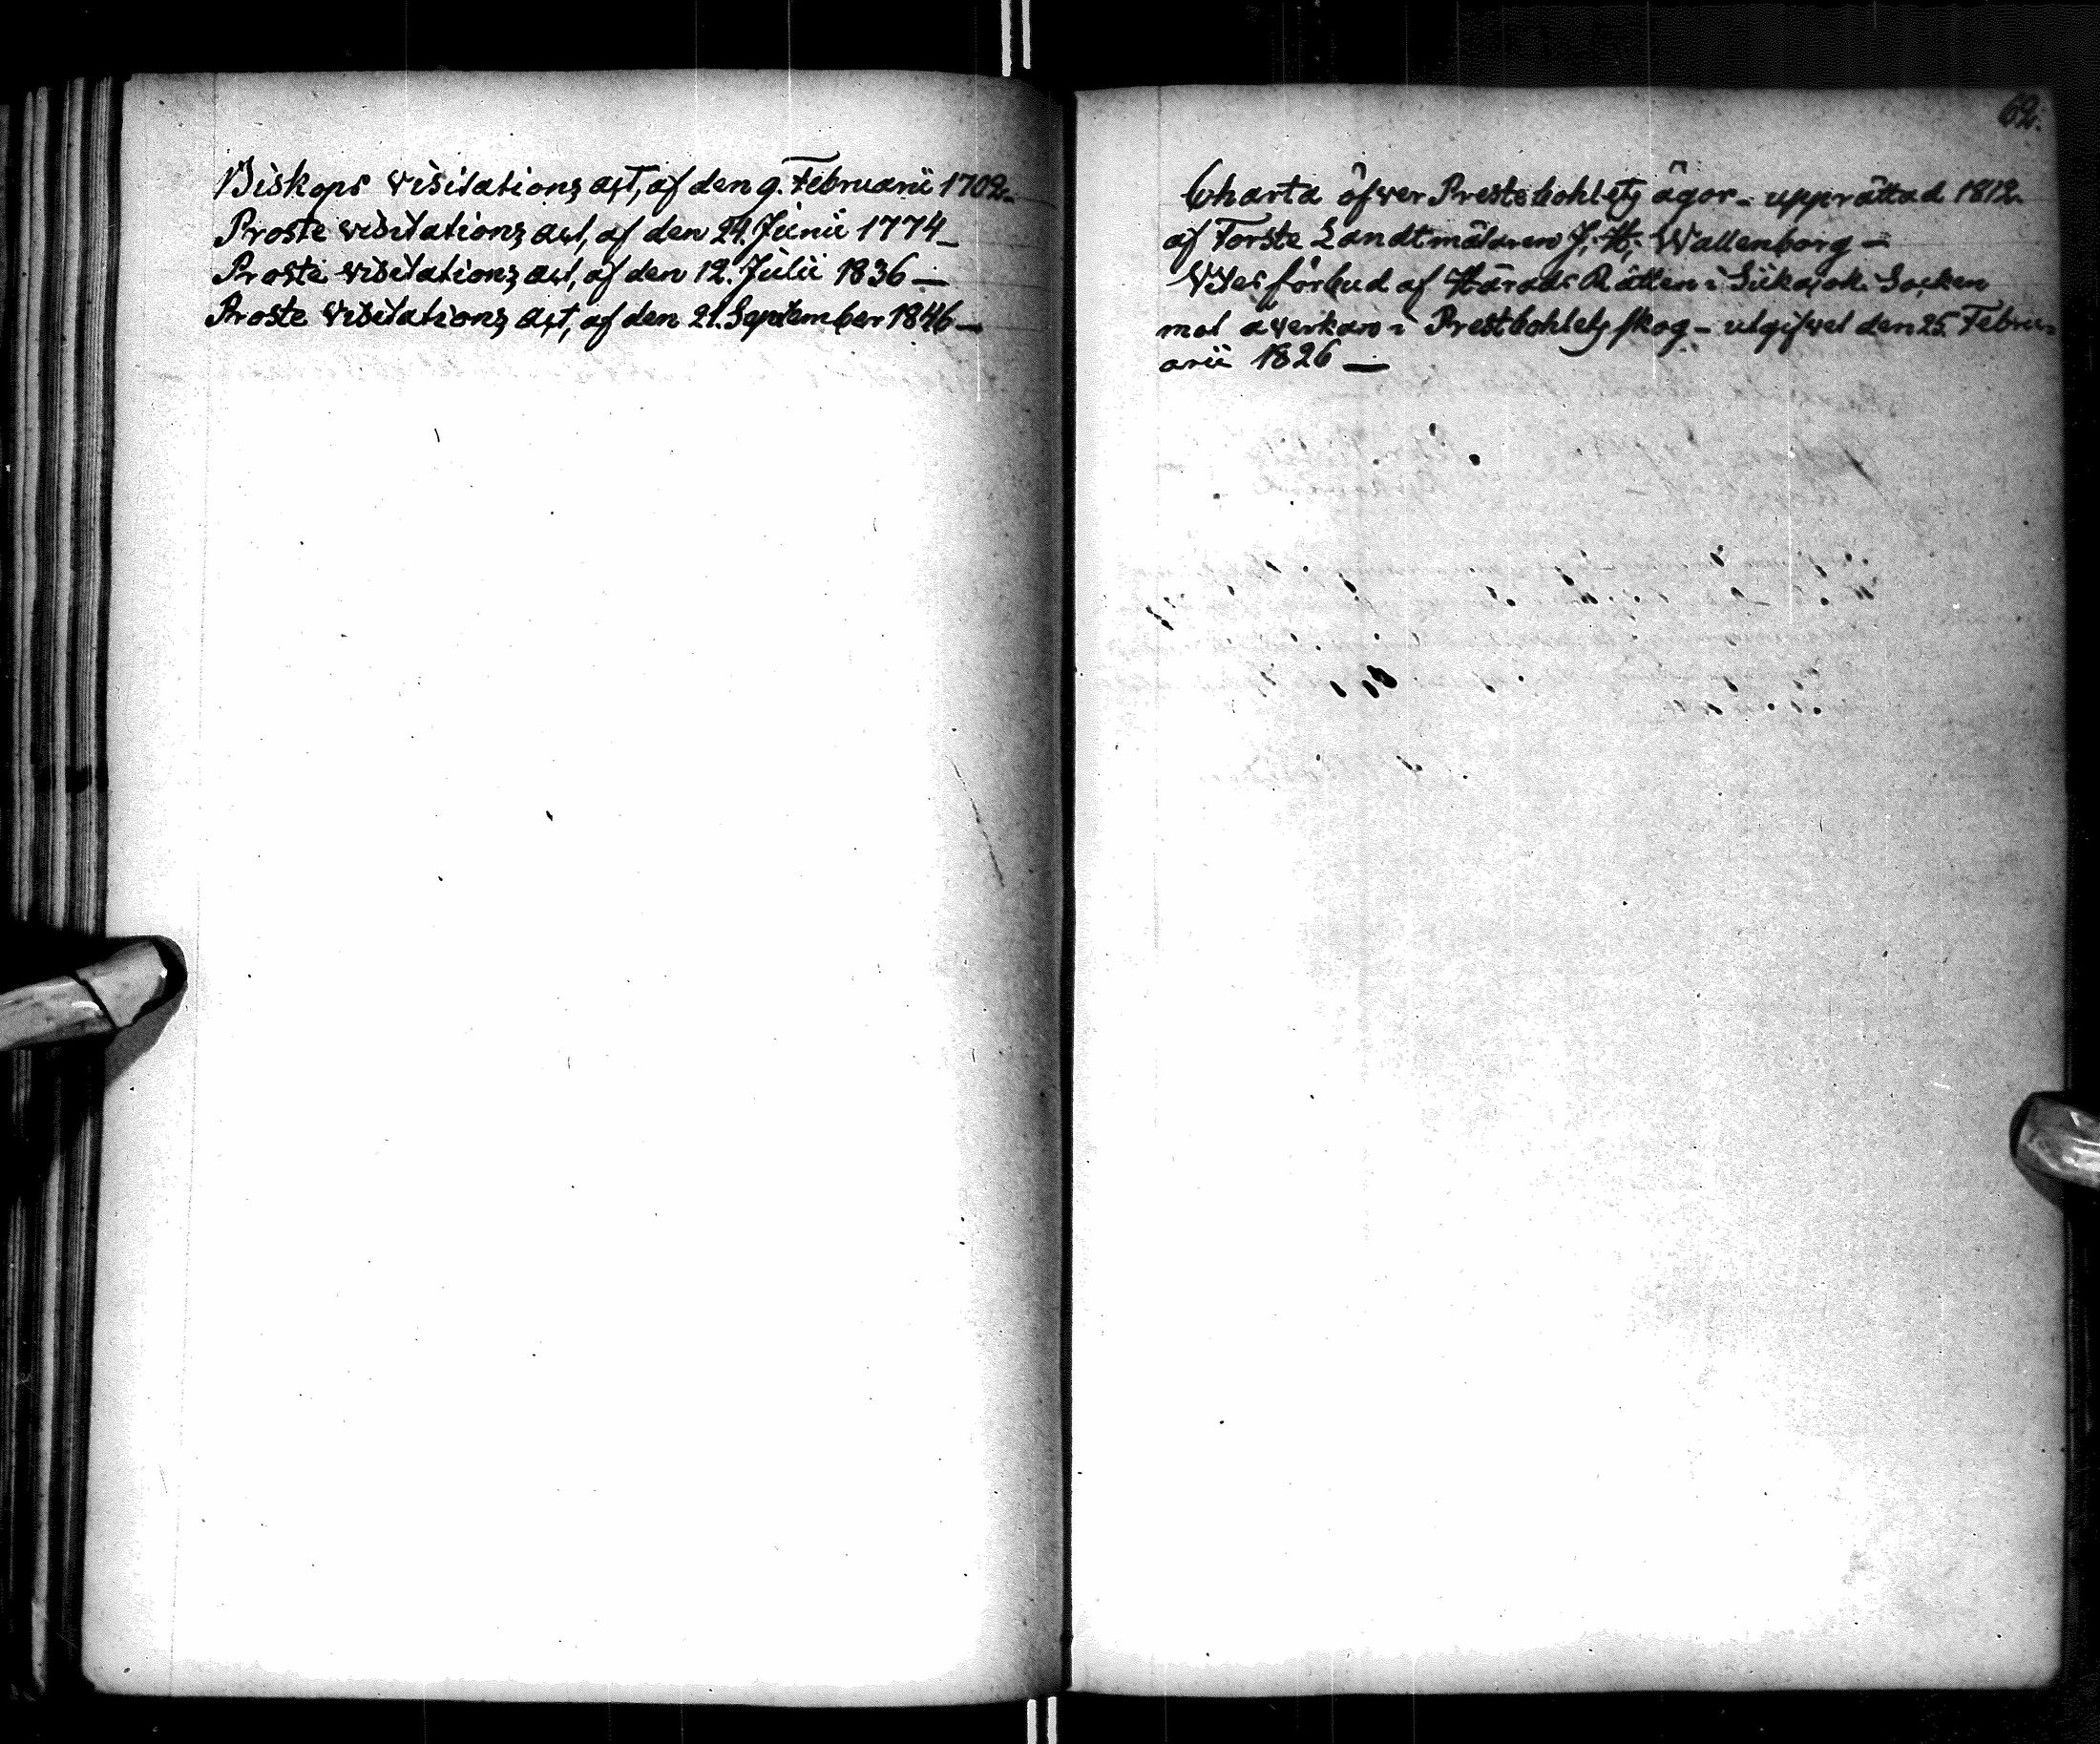 Biskops visitations act, af den 9. Februarii 1702.
Proste visitations act, af den 24. Junii 1774 —
Proste visitations act, af den 12. Julii 1836 —
Proste visitations act, af den 21. September 1846 —
62.
Charta öfver Prestebohlets ägor - upprättad 1812.
af Förste Landtmätaren J. H. Wallenborg —
Vites förbud af Härads Rätten i Siikajoki Socken
mot averkan i Prestbohlets skog - utgifvet den 25. Febru-
arii 1826 —